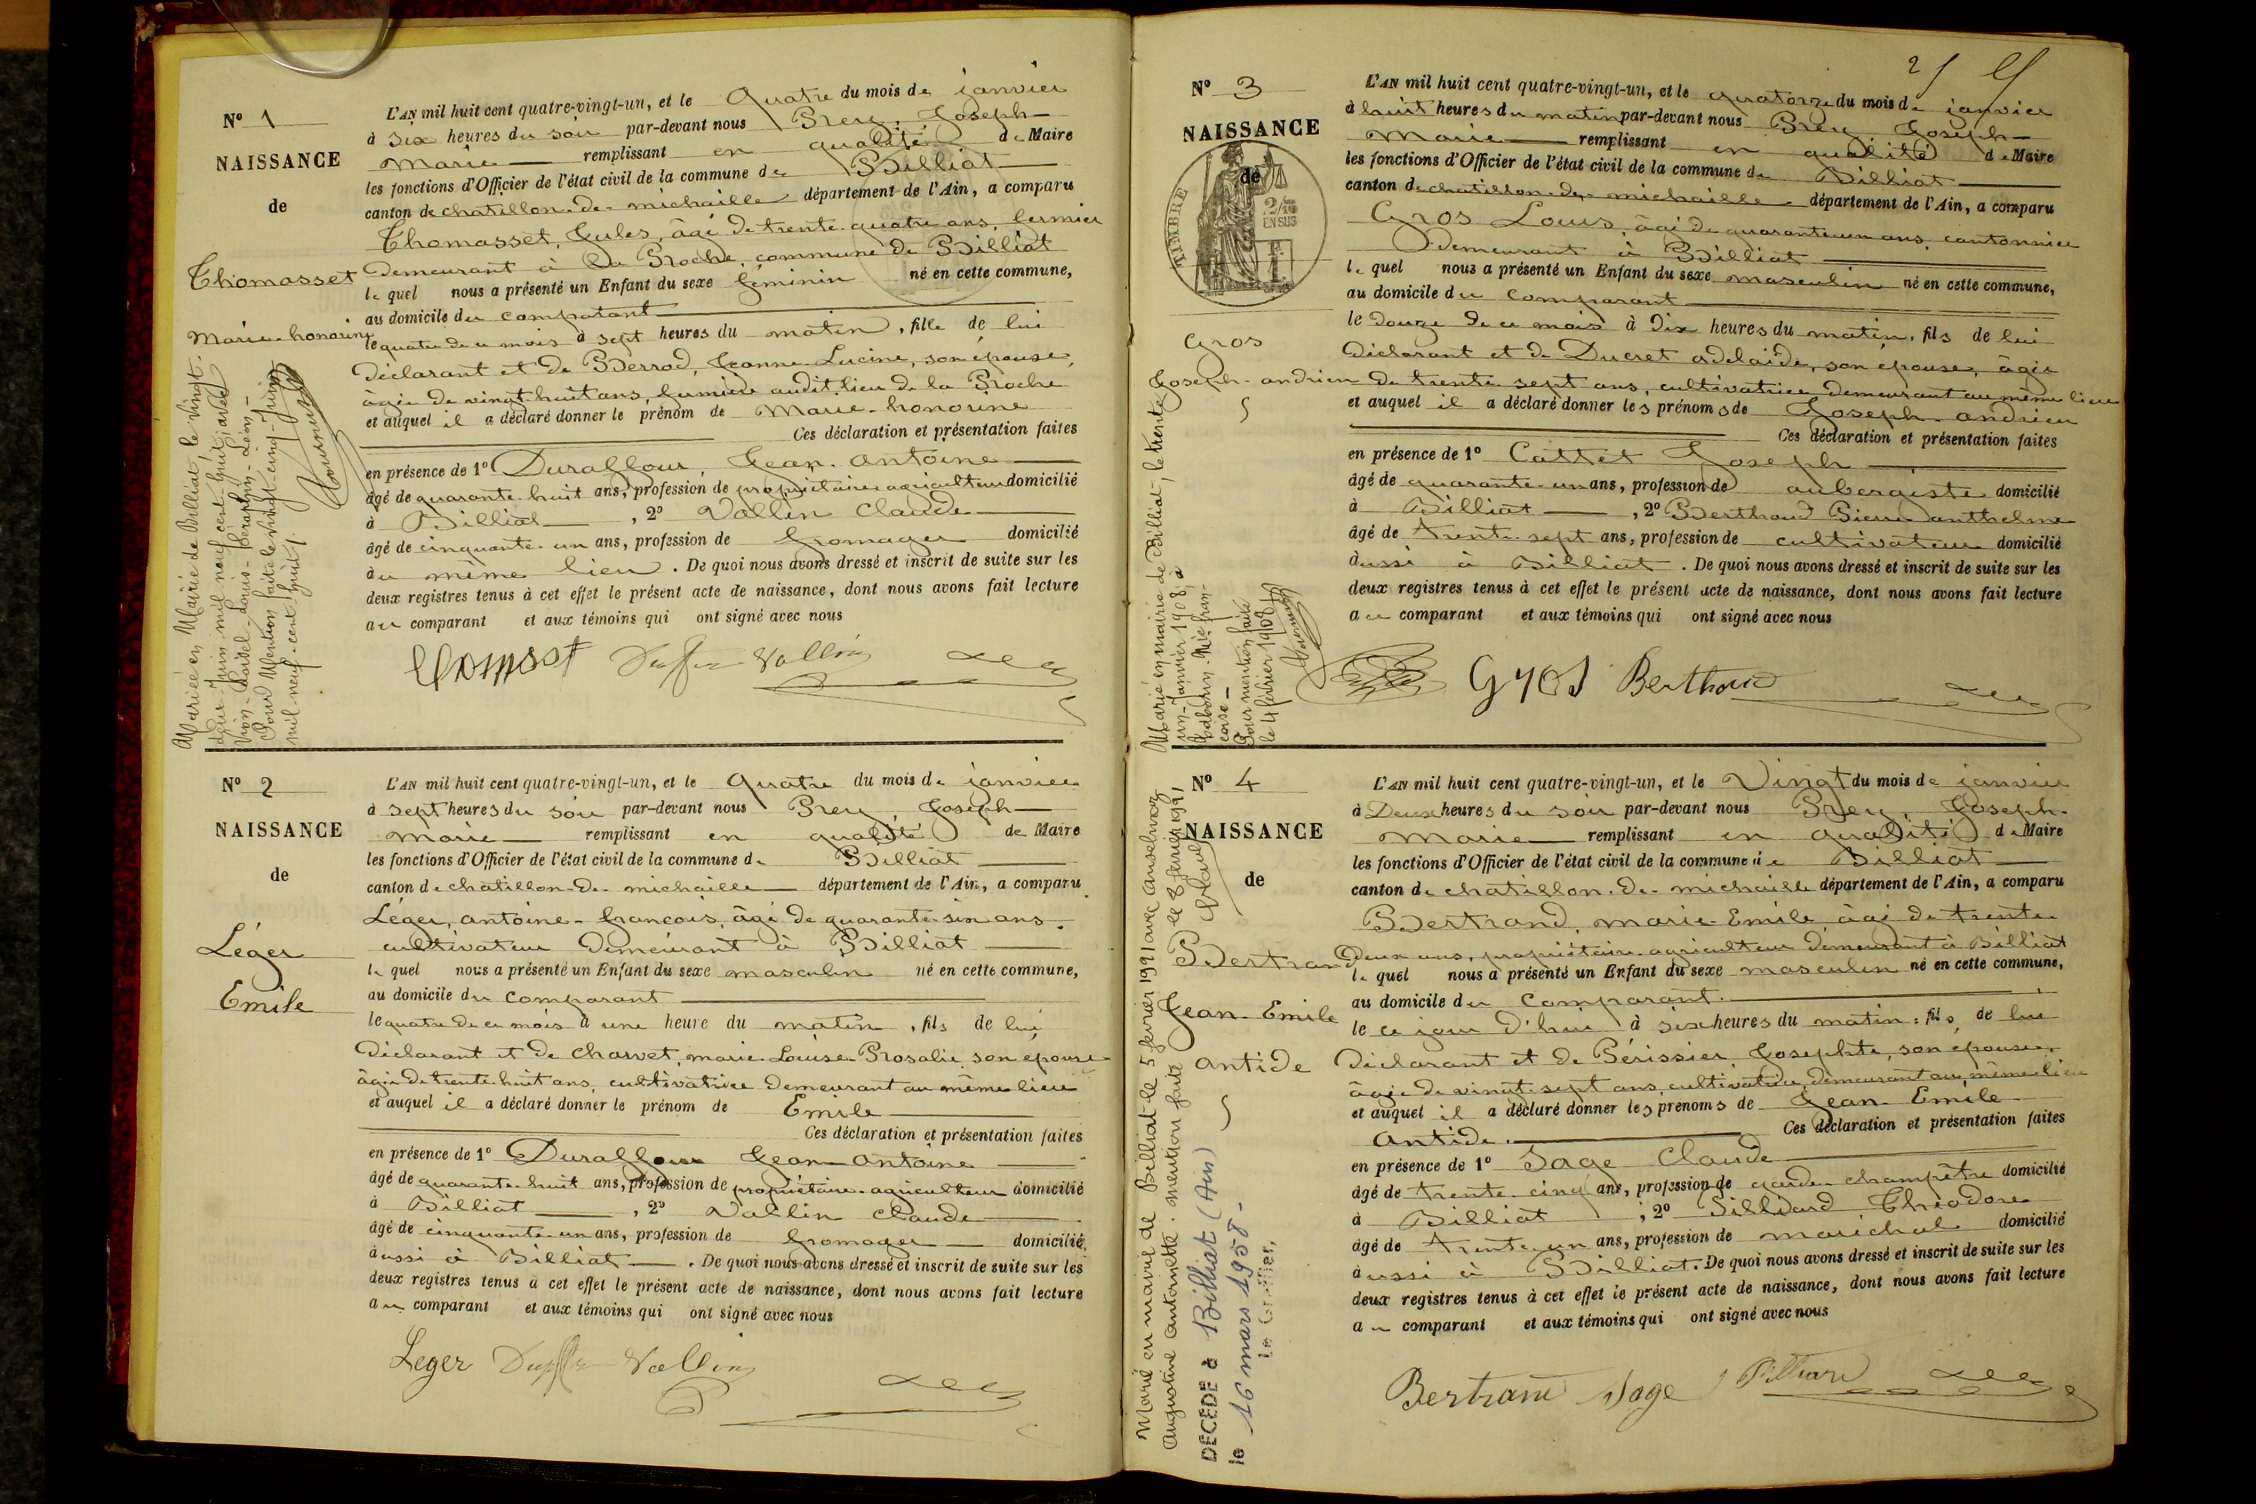 N° 1
NAISSANCE
de
Thomasset
Marie-honorine
L'AN mil huit cent quatre-vingt-un, et le Quatre du mois de janvier
à six heures du soir par-devant nous Brey, Joseph
Marie remplissant en qualité de Maire
les fonctions d'Officier de l'état civil de la commune de Billiat
canton de chatillon-de-michaille département de l'Ain, a comparu
Thomasset, Jules, âgé de trente-quatre ans, fermier
demeurant à la Roche, commune de Billiat
le quel nous a présenté un Enfant du sexe féminin né en cette commune,
au domicile du comparant
le quatre de ce mois à sept heures du matin, fille de lui
déclarant et de Berrod, Jeanne-Lucine, son épouse,
âgée de vingt-huit ans, fermière audit lieu de la Roche
et auquel il a déclaré donner le prénom de Marie-honorine
Ces déclaration et présentation faites
en présence de 1° Duraffour, Jean-antoine
âgé de quarante-huit ans, profession de propriétaire agriculteur domicilié
à Billiat, 2° Vallin Claude
âgé de cinquante-un ans, profession de fromager domicilié
au même lieu. De quoi nous avons dressé et inscrit de suite sur les
deux registres tenus à cet effet le présent acte de naissance, dont nous avons fait lecture
au comparant et aux témoins qui ont signé avec nous
Mariée en Mairie de Billiat le vingt-
deux-Juin mil neuf cent huit avec
Louis-Séraphin-Léon-
Pour Mention faite le vingt-cinq-Juin
mil-neuf-cent-huit
Vallin
N° 2
NAISSANCE
de
Léger
Emile
L'AN mil huit cent quatre-vingt-un, et le Quatre du mois de janvier
à sept heures du soir par-devant nous Brey, Joseph
Marie remplissant en qualité de Maire
les fonctions d'Officier de l'état civil de la commune de Billiat
canton de chatillon-de-michaille département de l'Ain, a comparu
Léger, antoine-françois, âgé de quarante-six ans,
cultivateur demeurant à Billiat
le quel nous a présenté un Enfant du sexe masculin né en cette commune,
au domicile du comparant
le quatre de ce mois à une heure du matin, fils de lui
déclarant et de Charvet, marie-Louise-Rosalie son épouse
âgée de trente-huit ans, cultivatrice demeurant au même lieu
et auquel il a déclaré donner le prénom de Emile
Ces déclaration et présentation faites
en présence de 1° Duraffour Jean-antoine
âgé de quarante-huit ans, profession de propriétaire-agriculteur domicilié
à Billiat, 2° Vallin Claude
âgé de cinquante-un ans, profession de fromager domicilié
aussi à Billiat. De quoi nous avons dressé et inscrit de suite sur les
deux registres tenus à cet effet le présent acte de naissance, dont nous avons fait lecture
au comparant et aux témoins qui ont signé avec nous
Leger Vallin
N° 3
NAISSANCE
de
TIMBRE
2/10
EN SUS
Gros
Joseph-andrien
L'AN mil huit cent quatre-vingt-un, et le quatorze du mois de janvier
à huit heures du matin par-devant nous Brey, Joseph
Marie remplissant en qualité de Maire
les fonctions d'Officier de l'état civil de la commune de Billiat
canton de chatillon-de-michaille département de l'Ain, a comparu
Gros Louis, âgé de quarante-un ans, cantonnier
demeurant à Billiat
le quel nous a présenté un Enfant du sexe masculin né en cette commune,
au domicile du comparant
le douze de ce mois à dix heures du matin, fils de lui
déclarant et de Ducret adelaïde, son épouse, âgée
de trente sept ans, cultivatrice demeurant au même lieu
et auquel il a déclaré donner les prénoms de Joseph-andrien
Ces déclaration et présentation faites
en présence de 1° Cattet Joseph
âgé de quarante-un ans, profession de aubergiste domicilié
à Billiat, 2° Berthoud Pierre anthelme
âgé de trente-sept ans, profession de cultivateur domicilié
aussi à Billiat. De quoi nous avons dressé et inscrit de suite sur les
deux registres tenus à cet effet le présent acte de naissance, dont nous avons fait lecture
au comparant et aux témoins qui ont signé avec nous
Marié en mairie de Billiat, le trente
un-Janvier 1908, à
Pour mention faite
le 4 février 1908
Gros Berthoud
N° 4
NAISSANCE
de
Bertrand
Jean-Emile
antide
L'AN mil huit cent quatre-vingt-un, et le Vingt du mois de janvier
à Deux heures du soir par-devant nous Brey, Joseph-
Marie remplissant en qualité de Maire
les fonctions d'Officier de l'état civil de la commune de Billiat
canton de chatillon-de-michaille département de l'Ain, a comparu
Bertrand, marie-Emile, âgé de trente
deux ans, propriétaire-agriculteur demeurant à Billiat
le quel nous a présenté un Enfant du sexe masculin né en cette commune,
au domicile du comparant
le ce jour d'hui à six heures du matin, fils de lui
déclarant et de Périssier Josephte, son épouse,
âgée de vingt-sept ans, cultivatrice, demeurant au même lieu
et auquel il a déclaré donner les prénoms de Jean-Emile
antide. Ces déclaration et présentation faites
en présence de 1° Sage Claude
âgé de trente-cinq ans, profession de garde-champêtre domicilié
à Billiat, 2° Silliard Théodore
âgé de trente-un ans, profession de maréchal domicilié
aussi à Billiat. De quoi nous avons dressé et inscrit de suite sur les
deux registres tenus à cet effet le présent acte de naissance, dont nous avons fait lecture
au comparant et aux témoins qui ont signé avec nous
Marié en mairie de Billiat le 5 février 1921 avec
Augustine Antoinette. mention faite le 8 février 1921
DÉCÉDÉ à Billiat (Ain)
le 16 mars 1958-
Le Greffier,
Bertrand Sage